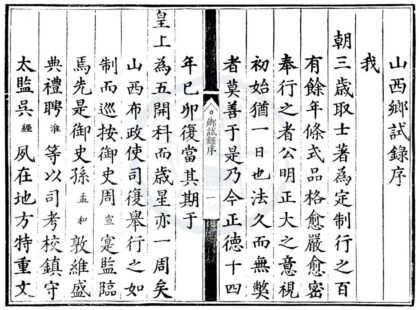 山西鄉試錄序
我
朝三歲取士著為定制行之百
有餘年條式品格愈嚴愈密
奉行之者公明正大之意視
初始猶一日也法久而無弊
者莫善于是乃今正德十四
鄉試錄序
一
年己卯復當其期于
皇上為五開科而歲星亦一周矣
山西布政使司復舉行之如
制而巡按御史周宣寔監臨
焉先是御史孫孟和敦維盛
典禮聘淮等以司考校鎮守
太監吳經夙在地方特重文